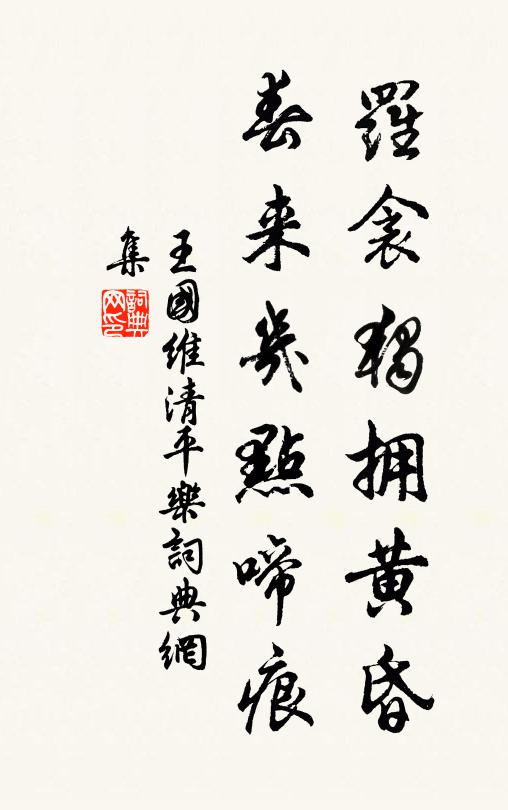 羅衾獨拥黃昏
春来幾點啼痕
王國維清平樂詞典網
集
詞典网印